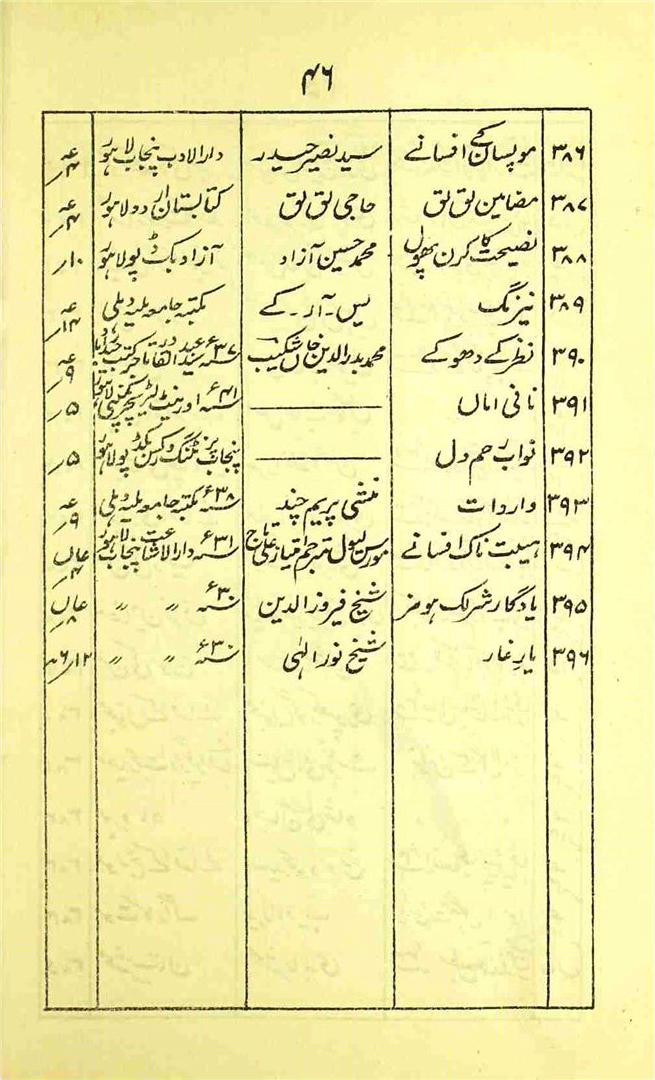 ۴۶
۳۸۶ موپسان کے افسانے سید نصیر حیدر دارالادب پنجاب لاہور
۳۸۷ مضامین لق لق حاجی لق لق کتابستان اردو لاہور
۳۸۸ نصیحت کا کرن پھول محمد حسین آزاد آزاد بک ڈپو لاہور ۱۰؍
۳۸۹ نیرنگ یس۔ آر۔ کے مکتبہ جامعہ ملیہ دہلی
۳۹۰ نظر کے دھوکے محمد بدرالدین خاں شکیب ۳۷ء
۳۹۱ نانی اماں ــــــ ۴۱ء اورینٹ لاہور ۵؍
۳۹۲ نواب رحم دل ــــــ پنجاب پرنٹنگ ورکس بکڈپو لاہور ۵؍
۳۹۳ واردات منشی پریم چند ۳۸ء مکتبہ جامعہ ملیہ دہلی
۳۹۴ ہیبت ناک افسانے مورس لیول مترجم امتیاز علی تاج ۳۱ء دارالاشاعت پنجاب لاہور
۳۹۵ یادگار شرلک ہومز شیخ فیروزالدین ۳۰ء 〃 〃
۳۹۶ یارِ غار شیخ نور الہٰی ۳۰ء 〃 〃